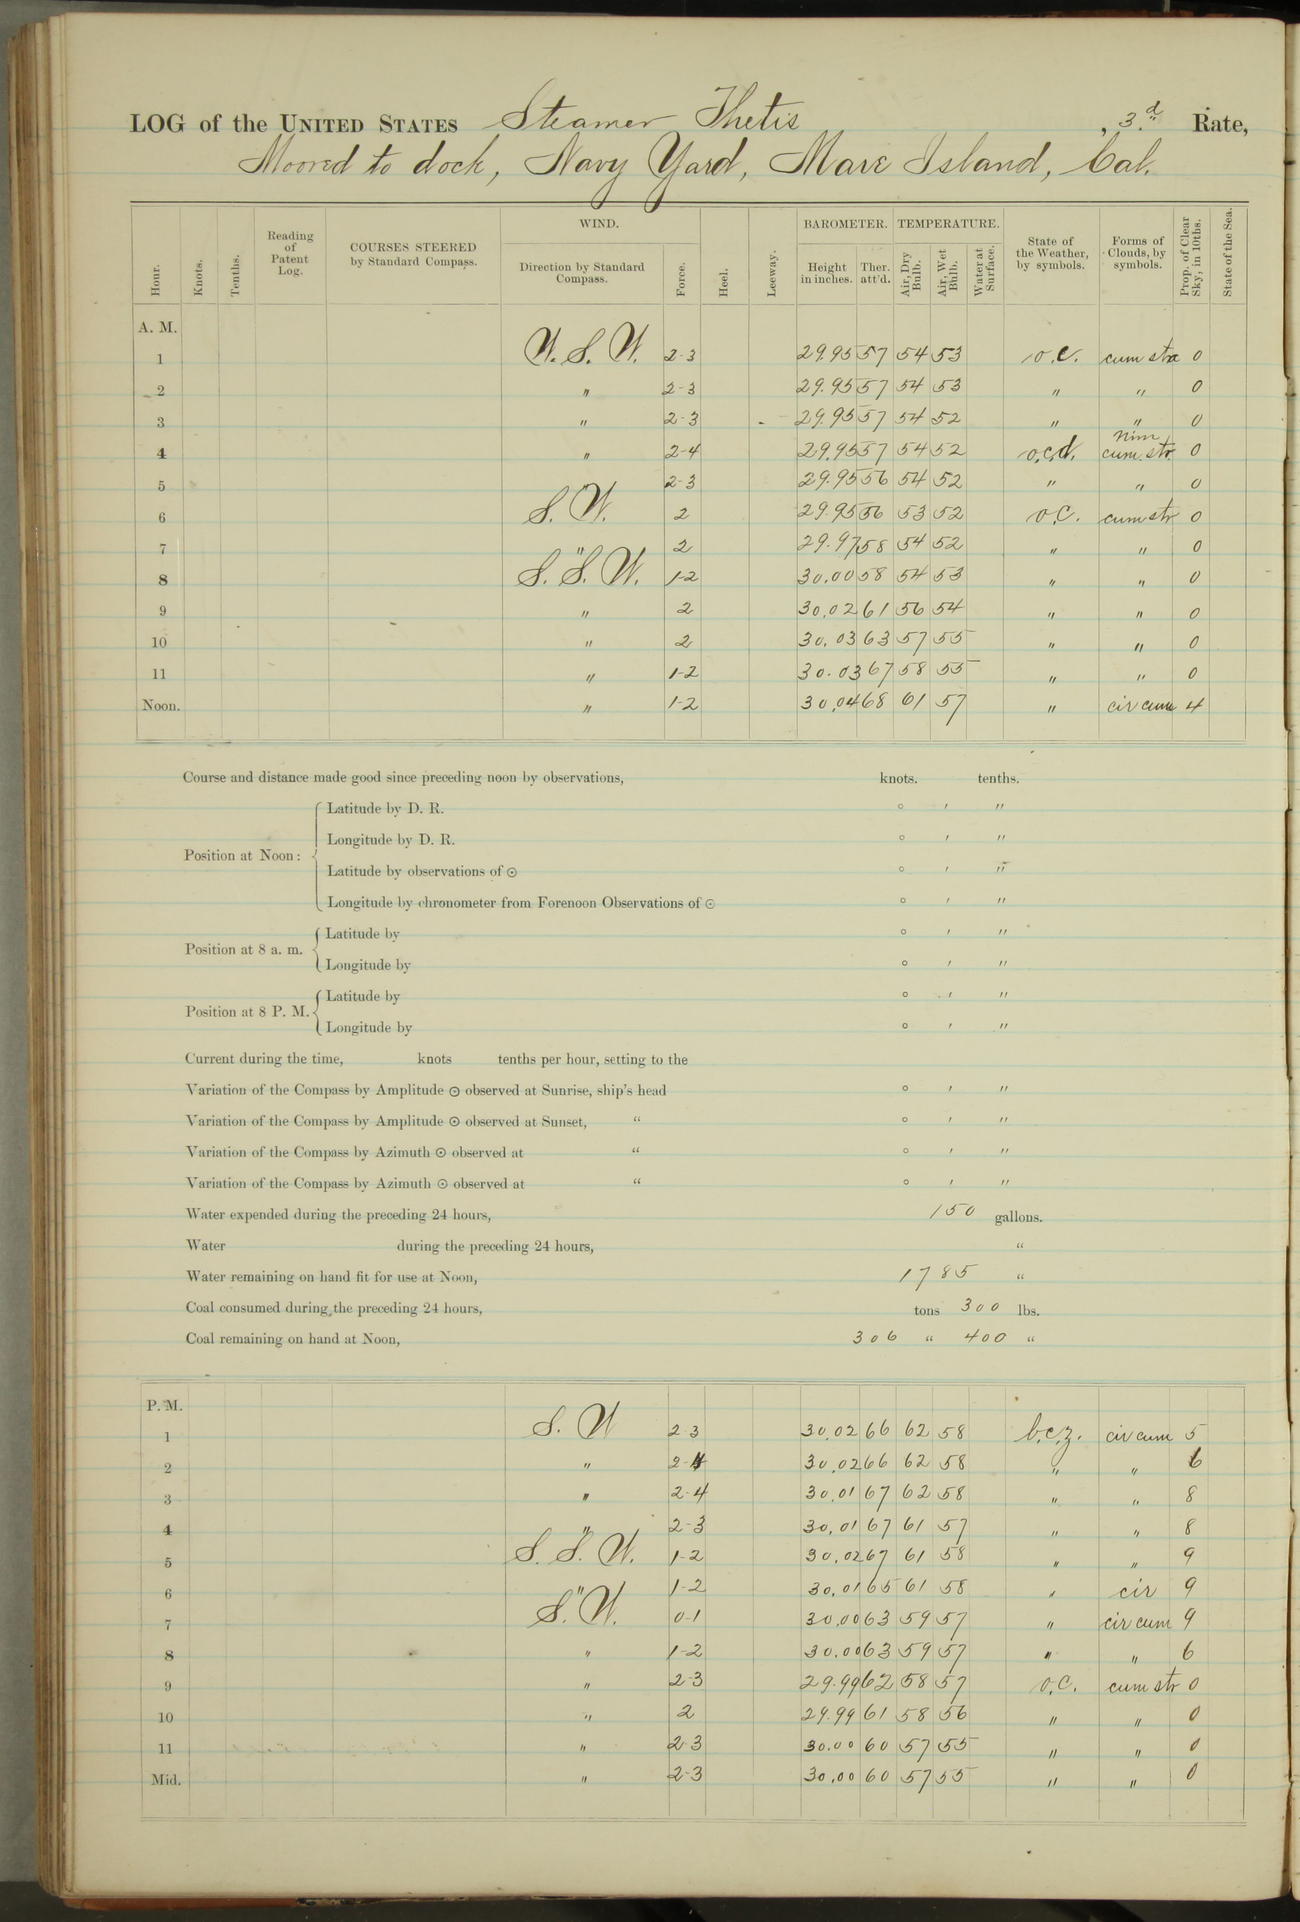 LOG of the UNITED STATES Steamer Thetis, 3.d Rate,
Moored to dock, Navy Yard, Mare Island, Cal.
Hour. Knots. Tenths. Reading of Patent Log. COURSES STEERED by Standard Compass. WIND. Direction by Standard Compass. Force. Heel. Leeway. BAROMETER. Height in inches. Ther. att'd. TEMPERATURE. Air, Dry Bulb. Air, Wet Bulb. Water at Surface. State of the Weather, by symbols. Forms of Clouds, by symbols. Prop. of Clear Sky, in 10ths. State of the Sea.
A. M.
1 W. S. W. 2-3 29.95 57 54 53 o.c. cum stra 0
2 " 2-3 29.95 57 54 53 " " 0
3 " 2-3 29.95 57 54 52 " " 0
4 " 2-4 29.95 57 54 52 o.c.d. nim cum. str. 0
5 " 2-3 29.95 56 54 52 " " 0
6 S. W. 2 29.95 56 53 52 o.c. cum str 0
7 " 2 29.97 58 54 52 " " 0
8 S. S. W. 1-2 30.00 58 54 53 " " 0
9 " 2 30.02 61 56 54 " " 0
10 " 2 30.03 63 57 55 " " 0
11 " 1-2 30.03 67 58 55 " " 0
Noon. " 1-2 30.04 68 61 57 " cir cum 4
Course and distance made good since preceding noon by observations, knots. tenths.
Position at Noon: Latitude by D. R. ° ′ ″
Longitude by D. R. ° ′ ″
Latitude by observations of ☉ ° ′ ″
Longitude by chronometer from Forenoon Observations of ☉ ° ′ ″
Position at 8 a. m. Latitude by ° ′ ″
Longitude by ° ′ ″
Position at 8 P. M. Latitude by ° ′ ″
Longitude by ° ′ ″
Current during the time, knots tenths per hour, setting to the
Variation of the Compass by Amplitude ☉ observed at Sunrise, ship's head ° ′ ″
Variation of the Compass by Amplitude ☉ observed at Sunset, “ ° ′ ″
Variation of the Compass by Azimuth ☉ observed at “ ° ′ ″
Variation of the Compass by Azimuth ☉ observed at “ ° ′ ″
Water expended during the preceding 24 hours, 150 gallons.
Water during the preceding 24 hours, “
Water remaining on hand fit for use at Noon, 1785 “
Coal consumed during the preceding 24 hours, tons 300 lbs.
Coal remaining on hand at Noon, 306 “ 400 “
P. M.
1 S. W 2-3 30.02 66 62 58 b.c.z. cir cum 5
2 " 2-4 30.02 66 62 58 " " 6
3 " 2-4 30.01 67 62 58 " " 8
4 " 2-3 30.01 67 61 57 " " 8
5 S. S. W. 1-2 30.02 67 61 58 " " 9
6 " 1-2 30.01 65 61 58 " cir 9
7 S. W. 0-1 30.00 63 59 57 " cir cum 9
8 " 1-2 30.00 63 59 57 " " 6
9 " 2-3 29.99 62 58 57 o.c. cum str 0
10 " 2 29.99 61 58 56 " " 0
11 " 2-3 30.00 60 57 55 " " 0
Mid. " 2-3 30.00 60 57 55 " " 0